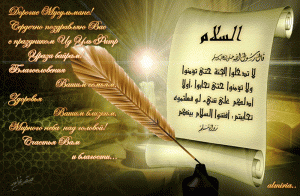 Дорогие Мусульмане!
Сердечно поздравляю Вас
с праздником Ид Уль Фитр
Ураза байрам
Благословения
Вашим семьям,
Здоровья
Вашим близким,
Мирного неба над головой!
Счастья Вам
и благости...
السلام
لا تدخلوا الجنة حتى تؤمنوا
ولا تؤمنوا حتى تحابوا، أولا
أدلكم على شيء لو فعلتموه
تحاببتم، أفشوا السلام بينكم
almira.